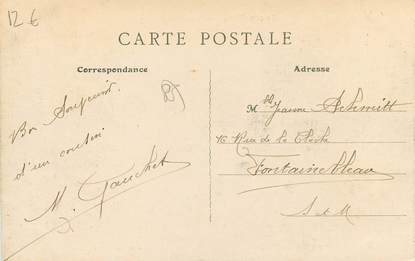 12 €
CARTE POSTALE
Correspondance
Adresse
Bon Souvenir
d'un cousin
M. Gauchet
Mlle Jeanne Schmitt
16 Rue de la Cloche
Fontainebleau
S et M